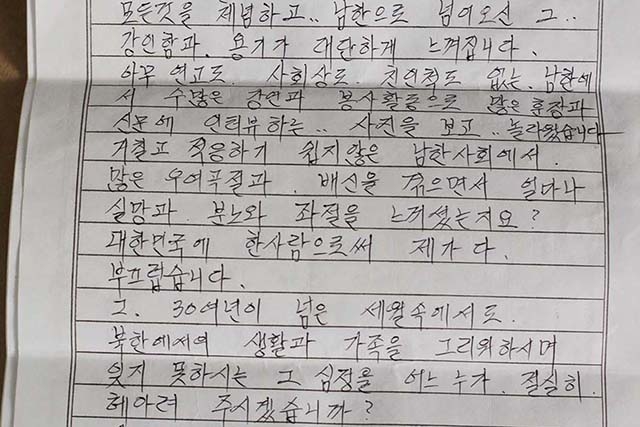 모든것을 체념하고.. 남한으로 넘어오신 그..
강인함과. 용기가 대단하게 느껴집니다.
아무 연고도. 사회상도. 친인척도 없는. 남한에
서 수많은 강연과 봉사활동으로 많은 훈장과
신문에 인터뷰하는.. 사진을 보고.. 놀라왔습니다
거칠고 적응하기 쉽지않은 남한사회에서.
많은 우여곡절과. 배신을 겪으면서 얼마나
실망과. 분노와 좌절을 느끼셨는지요?
대한민국에 한사람으로써 제가 다.
부끄럽습니다.
그. 30여년이 넘은 세월속에서도.
북한에서의 생활과 가족을 그리워하시며
잊지 못하시는 그 심정을 어느 누가. 절실히.
헤아려 주시겠습니까?